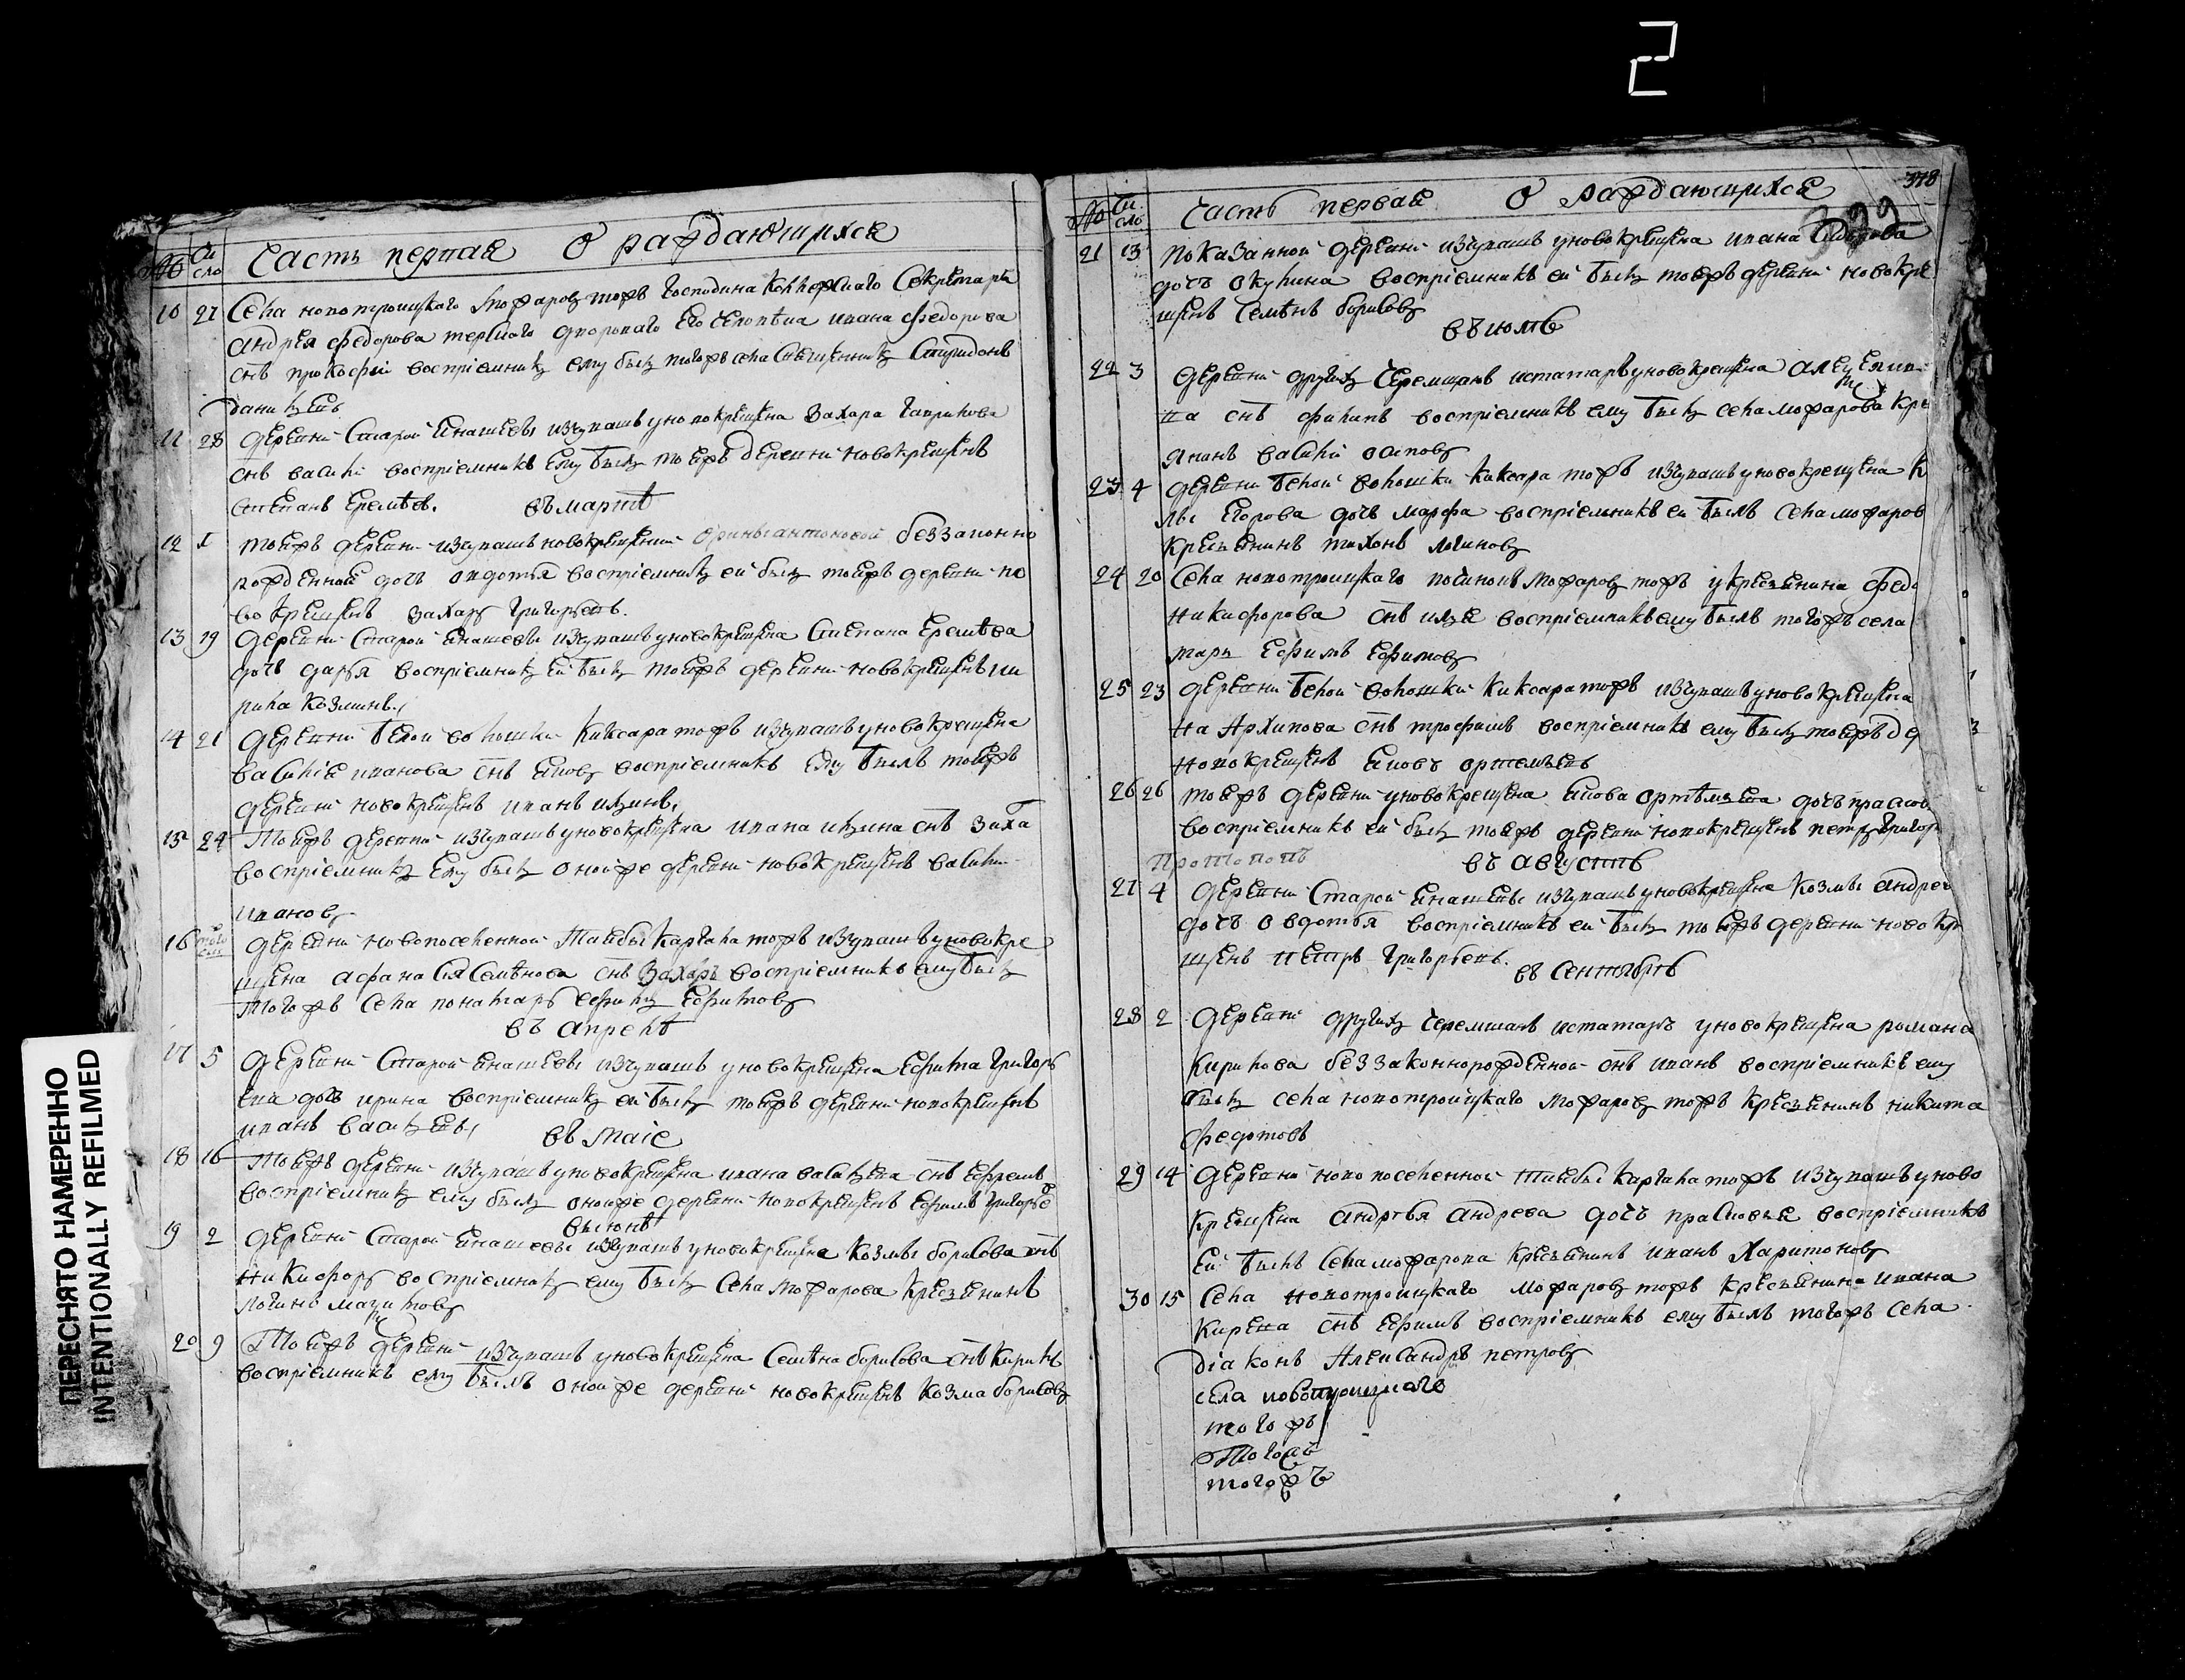 2
ПЕРЕСНЯТО НАМЕРЕННО
INTENTIONALLY REFILMED
№ Чи сло Часть первая О раждающихся
10 27 Села новотроицкаго Мофаров тожъ господина
андрея федорова дворового его человека ивана федорова
снъ прокофей восприемникъ ему былъ тогожъ села священникъ Спиридонъ
данилевъ
11 28 деревни Старой изчувашъ уновокрещена Захара гаврилова
снъ василей восприемникъ ему былъ тоежъ деревни новокрещенъ
степанъ Еремѣев. въ мартѣ
12 1 тоежъ деревни изчувашъ новокрещенки орины антоновой беззаконно
рожденной дочь овдотья восприемникъ ей былъ тоежъ деревни но
вокрещенъ Захаръ григорьевъ.
13 19 деревни Старой изчувашъ уновокрещена Степана Еремѣева
дочь дарья восприемникъ ей былъ тоежъ деревни новокрещенъ ги
рила козминъ.
14 21 деревни белой волошки Киксара тожъ изчувашъ уновокрещена
василия иванова снъ восприемникъ ему былъ тоежъ
деревни новокрещенъ иванъ ильинъ.
15 24 Тоежъ деревни изчувашъ уновокрещена ивана ильина снъ
восприемникъ ему былъ оной же деревни новокрещенъ василей
иванов
16 того числ деревни новопоселенной Таябы Каргала тожъ изчувашъ уновокре
щена афанасия Семѣнова снъ Захаръ восприемникъ ему былъ
Тогожъ села понамарь ефимъ Ефимов
въ апрелѣ
17 5 деревни Старой изчувашъ уновокрещена Ефима григорь
ева дочь ирина восприемникъ ей былъ тоежъ деревни новокрещенъ
иванъ васильевъ въ маіе
18 16 Тоежъ деревни изчувашъ уновокрещена ивана васильева снъ ефремъ
восприемникъ ему былъ оной же деревни новокрещенъ Ефимъ григорьевъ
въ июнѣ
19 2 деревни Старой изчувашъ уновокрещена козмы борисова снъ
Никифоръ восприемникъ ему былъ Села мофарова кресьянинъ
логинъ
20 9 Тоежъ деревни изчувашъ уновокрещена Семѣна борисова снъ кирилъ
восприемникъ ему былъ оной же деревни новокрещенъ козма борисов
378
399
№ Чи сло Часть первая О раждающихся
21 13 показанной деревни изчувашъ уновокрещена ивана
дочь окулина восприемникъ ей былъ тоежъ деревни новокре
щенъ Семѣнъ борисов
въ июлѣ
22 3 деревни других черемшанъ истатаръ уновокрещена
ва снъ филипъ восприемникъ ему былъ села мофарова кре
янинъ василей осипов
23 4 деревни белой волошки Киксара тожъ изчувашъ уновокрещена К
мы Егорова дочь марфа восприемникъ ей былъ села мофаров
кресьянинъ тихонъ логинов
24 20 Села новотроицкаго мофаров тожъ укресьянина федо
Никифорова снъ илья восприемникъ ему былъ тогожъ села
марь Ефимъ Ефимов
25 23 деревни белой волошки Киксара тожъ изчувашъ уновокрещена
на Архипова снъ трофимъ восприемникъ ему былъ тоежъ де
новокрещенъ ортемьевъ
26 26 тоежъ деревни уновокрещена ортемьева дочь прасков
восприемникъ ей былъ тоежъ деревни новокрещенъ петръ григор
Протопопъ въ августѣ
27 4 деревни Старой изчувашъ уновокрещена козмы андрев
дочь овдотья восприемникъ ей былъ тоежъ деревни новокр
щенъ петръ григорьевъ. въ Сентябрѣ
28 2 деревни других черемшанъ истатаръ уновокрещена романа
кирилова беззаконнорожденной снъ иванъ восприемникъ ему
былъ села новотроицкаго мофаров тожъ кресьянинъ никита
федотовъ
29 14 деревни новопоселенной Таябы Каргала тожъ изчувашъ уново
крещена андрѣя андрева дочь прасковья восприемникъ
ей былъ села мофарова кресьянинъ иванъ Харитонов
30 15 Села новотроицкаго мофаров тожъ кресьянина ивана
снъ ефимъ восприемникъ ему былъ тогожъ села
діаконъ Александръ петров
села новотроицкаго
тогожъ
тогожъ